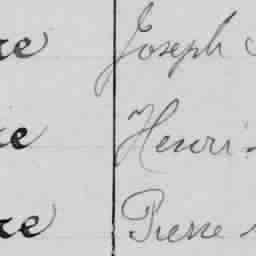 re Joseph
re Henri
re Pierre